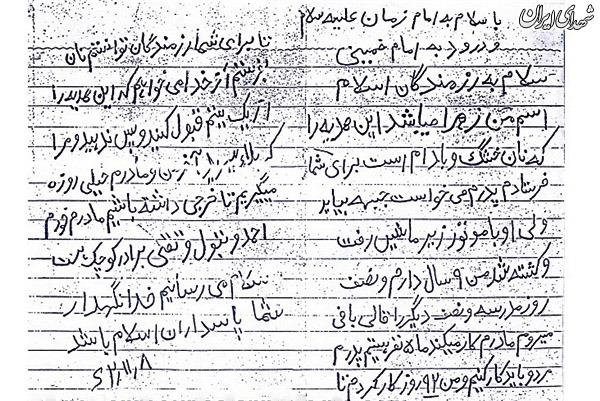 شهدای ایران
با سلام به امام زمان علیه سلام
و درود به امام خمینی
سلام به رزمندگان اسلام
اسم من زهرا میباشد این هدیه را
که نان خشک و بادام است برای شما
فرستادم پدرم می خواست جبهه بیاید
ولی او با موتور زیر ماشین رفت
و کشته شد من ۹ سال دارم و نصف
روز مدرسه و نصف دیگر را قالی بافی
میروم مادرم کار میکند ما ۵ نفر هستیم پدرم
مرد و باید کار کنیم و من ۹۲ روز کار کردم تا
تا برای شما رزمندگان توانستم نان
بفرستم از خدا می خواهم که این هدیه را
از یک یتیم قبول کنید و پس ندهید و مرا
که بلاء ببرید آخر من و مادرم خیلی روزه
میگیریم تا خرجی داشته باشیم مادرم خودم
احمد و بتول و تقی برادر کوچک
سلام می رسانیم خدا نگهدار
شما پاسداران اسلام باشد
۶۲/۱۱/۸